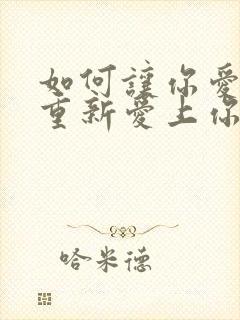 如何讓你愛
重新愛上你
哈米德